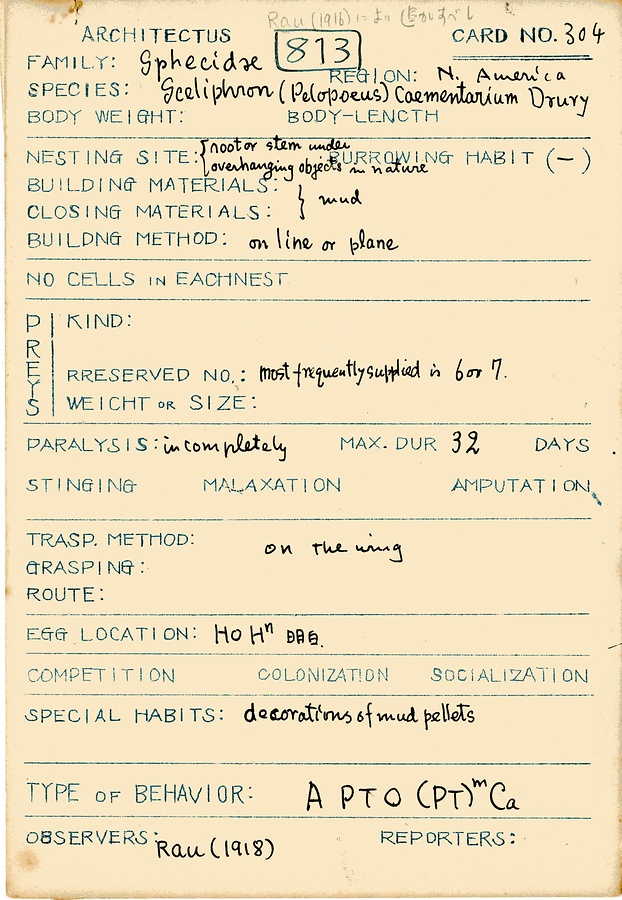 Rau (1916)
ARCHITECTUS 813 CARD NO. 304
FAMILY: Sphecidae REGION: N. America
SPECIES: Sceliphron (Pelopoeus) Caementarium Drury
BODY WEIGHT: BODY-LENCTH
NESTING SITE: { root or stem under
overhanging objects in nature BURROWING HABIT (—)
BUILDING MATERIALS:
CLOSING MATERIALS: } mud
BUILDNG METHOD: on line or plane
NO CELLS IN EACHNEST
PREYS
KIND:
RRESERVED NO.: most frequently supplied is 6 or 7.
WEICHT OR SIZE:
PARALYSIS: incompletely MAX. DUR 32 DAYS
STINGING MALAXATION AMPUTATION
TRASP. METHOD: on the wing
GRASPING:
ROUTE:
EGG LOCATION: HO Hⁿ 明白.
COMPETITION COLONIZATION SOCIALIZATION
SPECIAL HABITS: decorations of mud pellets
TYPE OF BEHAVIOR: A PTO (PT)ᵐ Ca
OBSERVERS: Rau (1918) REPORTERS: